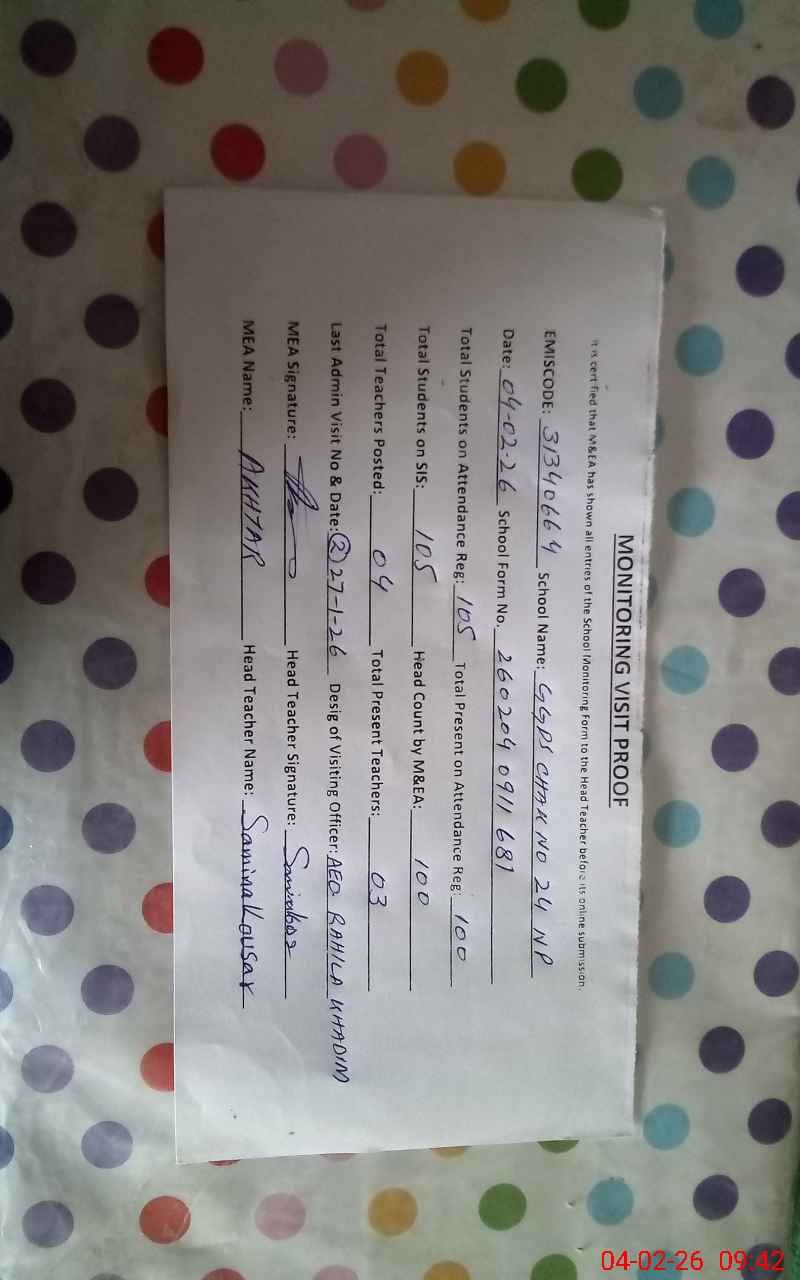 MONITORING VISIT PROOF
It is certified that M&EA has shown all entries of the School Monitoring Form to the Head Teacher before its online submission.
EMISCODE: 31340664 School Name: GGPS CHAK NO 24 NP
Date: 04-02-26 School Form No. 260204 0911 681
Total Students on Attendance Reg: 105 Total Present on Attendance Reg: 100
Total Students on SIS: 105 Head Count by M&EA: 100
Total Teachers Posted: 04 Total Present Teachers: 03
Last Admin Visit No & Date: (2) 27-1-26 Desig of Visiting Officer: AEO RAHILA KHADIM
MEA Signature: Head Teacher Signature:
MEA Name: AKHTAR Head Teacher Name: Samina Kousar
04-02-26 09:42